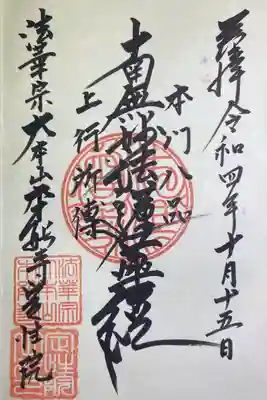 参拝令和四年十月十五日
本門八品
南無妙法蓮華経
上行所傳
法華宗大本山本能寺